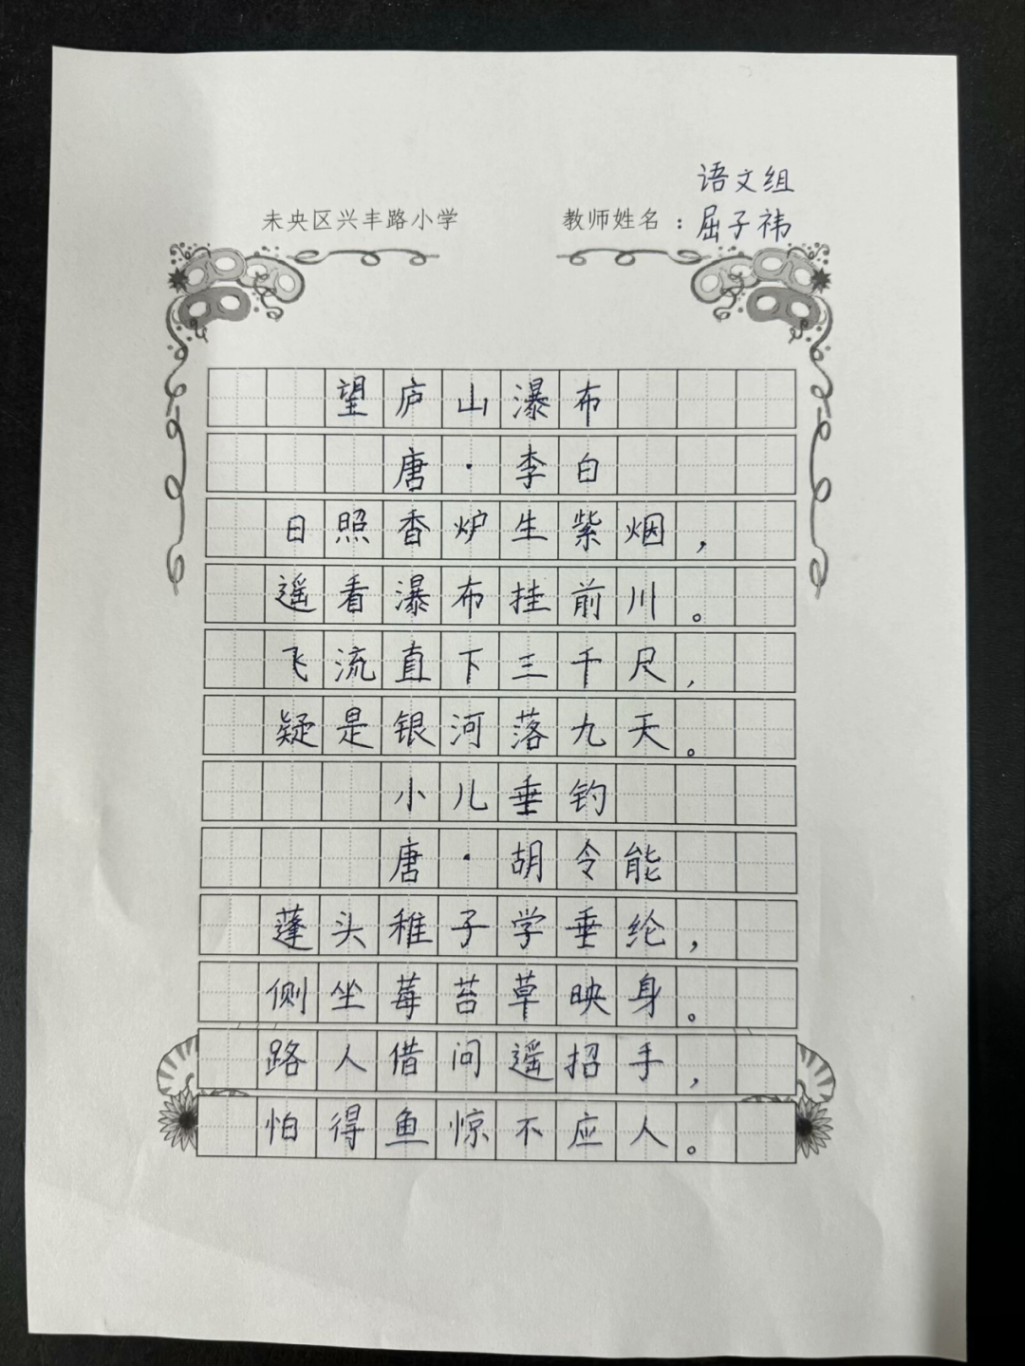 语文组
未央区兴丰路小学 教师姓名：屈子祎
望庐山瀑布
唐·李白
日照香炉生紫烟，
遥看瀑布挂前川。
飞流直下三千尺，
疑是银河落九天。
小儿垂钓
唐·胡令能
蓬头稚子学垂纶，
侧坐莓苔草映身。
路人借问遥招手，
怕得鱼惊不应人。